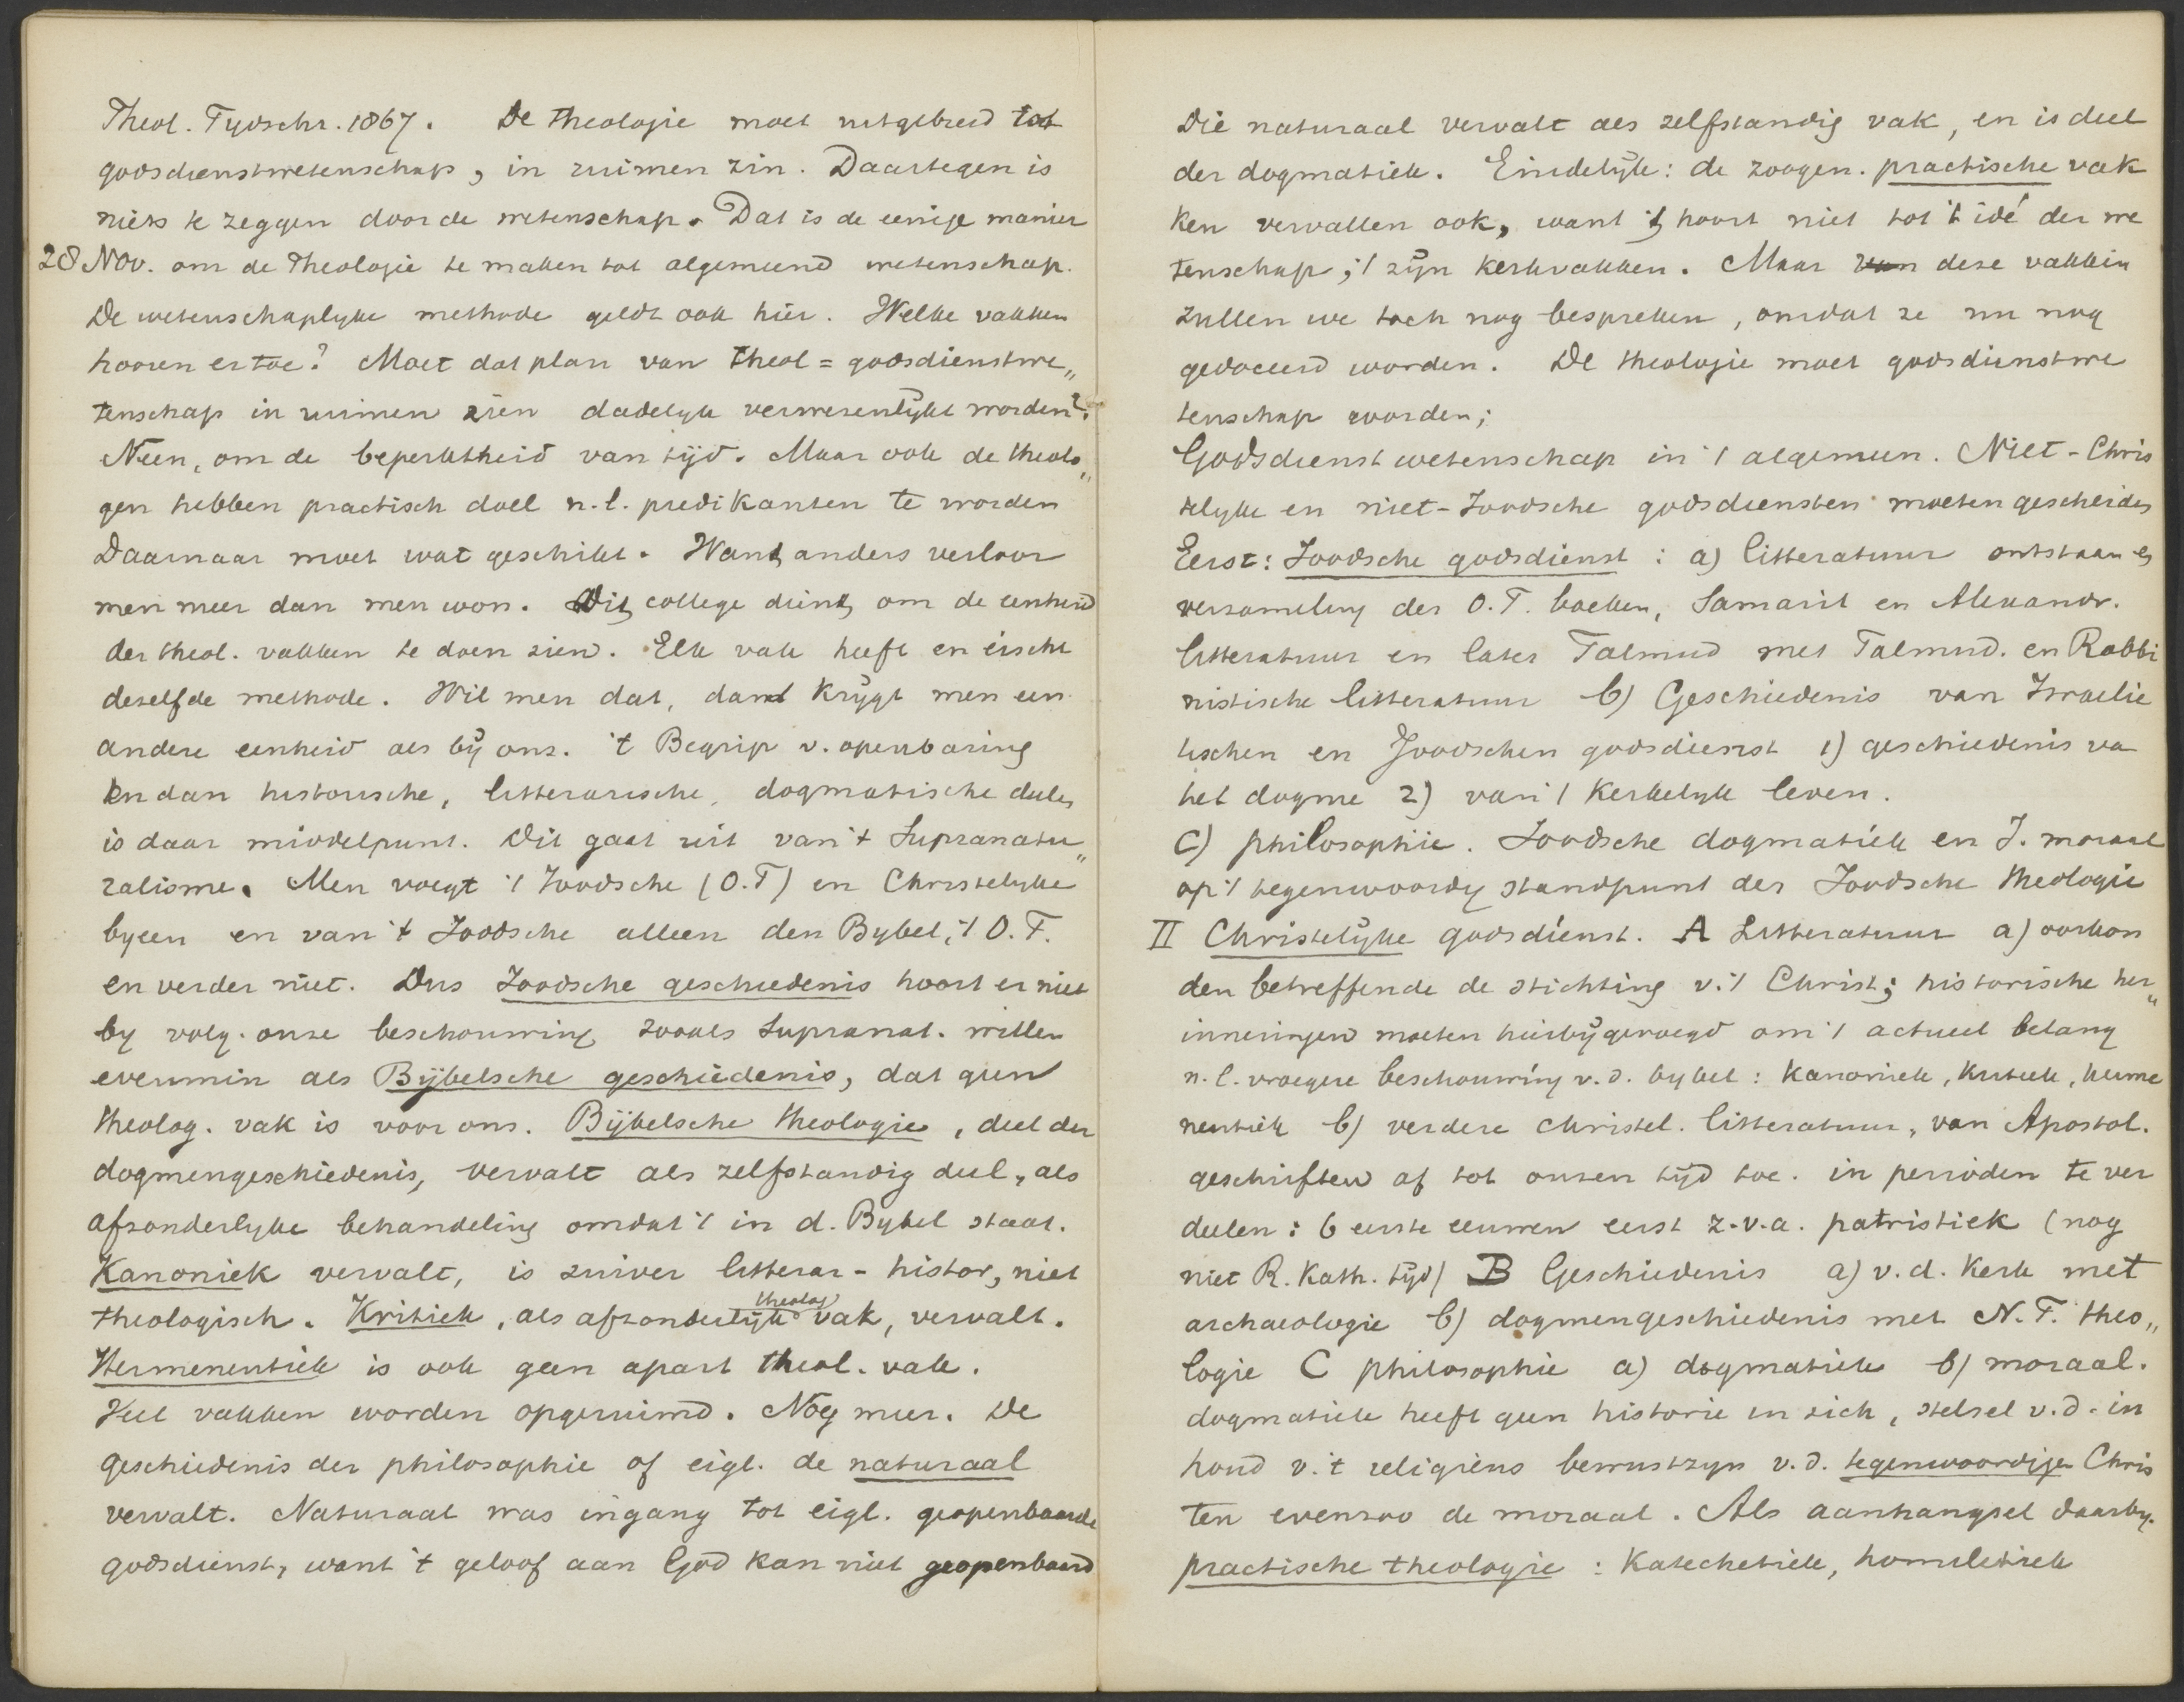 Theol. Tydschr. 1867. De theologie moet uitgebreid tot
godsdienstwetenschap, in ruimen zin. Daartegen is
niets te zeggen door de wetenschap. Dat is de eenige manier
28 Nov. om de Theologie te maken tot algemeend wetenschap.
De wetenschaplyke methode geldt ook hier. Welke vakken
hooren er toe? Moet dat plan van theol = godsdienstwe„
tenschap in ruimen zien dadelyk verwesenlÿkt worden?
Neen, om de beperktheid van tijd. Maar ook de theolo„
gen hebben practisch doel n.l. predikanten te worden
Daarnaar moet wat geschikt. Want anders verloor
men meer dan men won. Dit college dient om de eenheid
der theol. vakken te doen zien. Elk vak heeft en eischt
deselfde methode. Wil men dat, dand krÿgt men een
andere eenheid als bÿ ons. 't Begrip v. openbaring
en dan historische, litterarische, dogmatische deelen
is daar middelpunt. Dit gaat uit van 't Supranatu„
ralisme. Men voegt 't Joodsche (O.T) en Christelyke
byeen en van 't Joodsche alleen den Bybel, 't O.T.
en verder niet. Dus Joodsche geschiedenis hoort er niet
by volg. onze beschouwing zooals Supranat. willen
evenmin als Bÿbelsche geschiedenis, dat geen
theolog. vak is voor ons. Bÿbelsche theologie, deel der
dogmengeschiedenis, vervalt als zelfstandig deel, als
afzonderlyke behandeling omdat 't in d. Bybel staat.
Kanoniek vervalt, is zuiver litterar-histor, niet
theologisch. Kritiek, als afzonderlÿk theolog vak, vervalt.
Hermeneutiek is ook geen apart theol. vak.
Heel vakken worden opgeruimd. Nog meer. De
geschiedenis der philosophie of eigl. de naturaal
vervalt. Naturaal was ingang tot eigl. geopenbaarde
godsdienst, want 't geloof aan God kan niet geopenbaard
Die naturaal vervalt als zelfstandig vak, en is deel
der dogmatiek. Eindelÿk: de zoogen. practische vak
ken vervallen ook, want 't hoort niet tot 't idé der we
tenschap; 't zÿn kerkvakken. Maar van dese vakken
zullen we toch nog bespreken, omdat ze nu nog
gedoceerd worden. De theologie moet godsdienstwe
tenschap worden;
Godsdienstwetenschap in 't algemeen. Niet-Chris
telyke en niet-Joodsche godsdiensten moeten gescheiden
Eerst: Joodsche godsdienst: a) litteratuur ontstaan en
versameling der O.T. boeken, Samarit en Alexandr.
litteratuur en later Talmud met Talmud. en Rabbi
nistische litteratuur b) Geschiedenis van Israelie
tischen en Joodschen godsdienst 1) geschiedenis va
het dogme 2) van 't kerkelyk leven.
C) philosophie. Joodsche dogmatiek en J. moraal
op 't tegenwoordig standpunt der Joodsche theologie
II Christelÿke godsdienst. A Litteratuur a) oorkon
den betreffende de stichting v. 't Christ; historische her„
inneringen moeten hierbÿgevoegd om 't actueel belang
n.l. vroegere beschouwing v.d. bybel: kanoniek, kritiek, herme
neutiek b) verdere christel. litteratuur, van Apostol.
geschriften af tot onzen tÿd toe. in perioden te ver
deelen: 6 eerste eeuwen eerst z.v.a. patristiek (nog
niet R. Kath. tÿd) B Geschiedenis a) v.d. Kerk met
archaeologie b) dogmengeschiedenis met N.T. theo„
logie C philosophie a) dogmatiek b) moraal.
dogmatiek heeft geen historie in zich, stelsel v.d. in
houd v. 't religieus bewustzyn v.d. tegenwoordige Chris
ten evenzoo de moraal. Als aanhangsel daarby.
practische theologie: Katechetiek, homiletiek